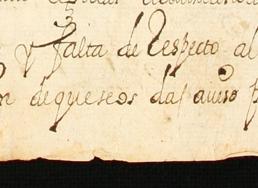 y falta de Respecto al
de que se os da, aviso